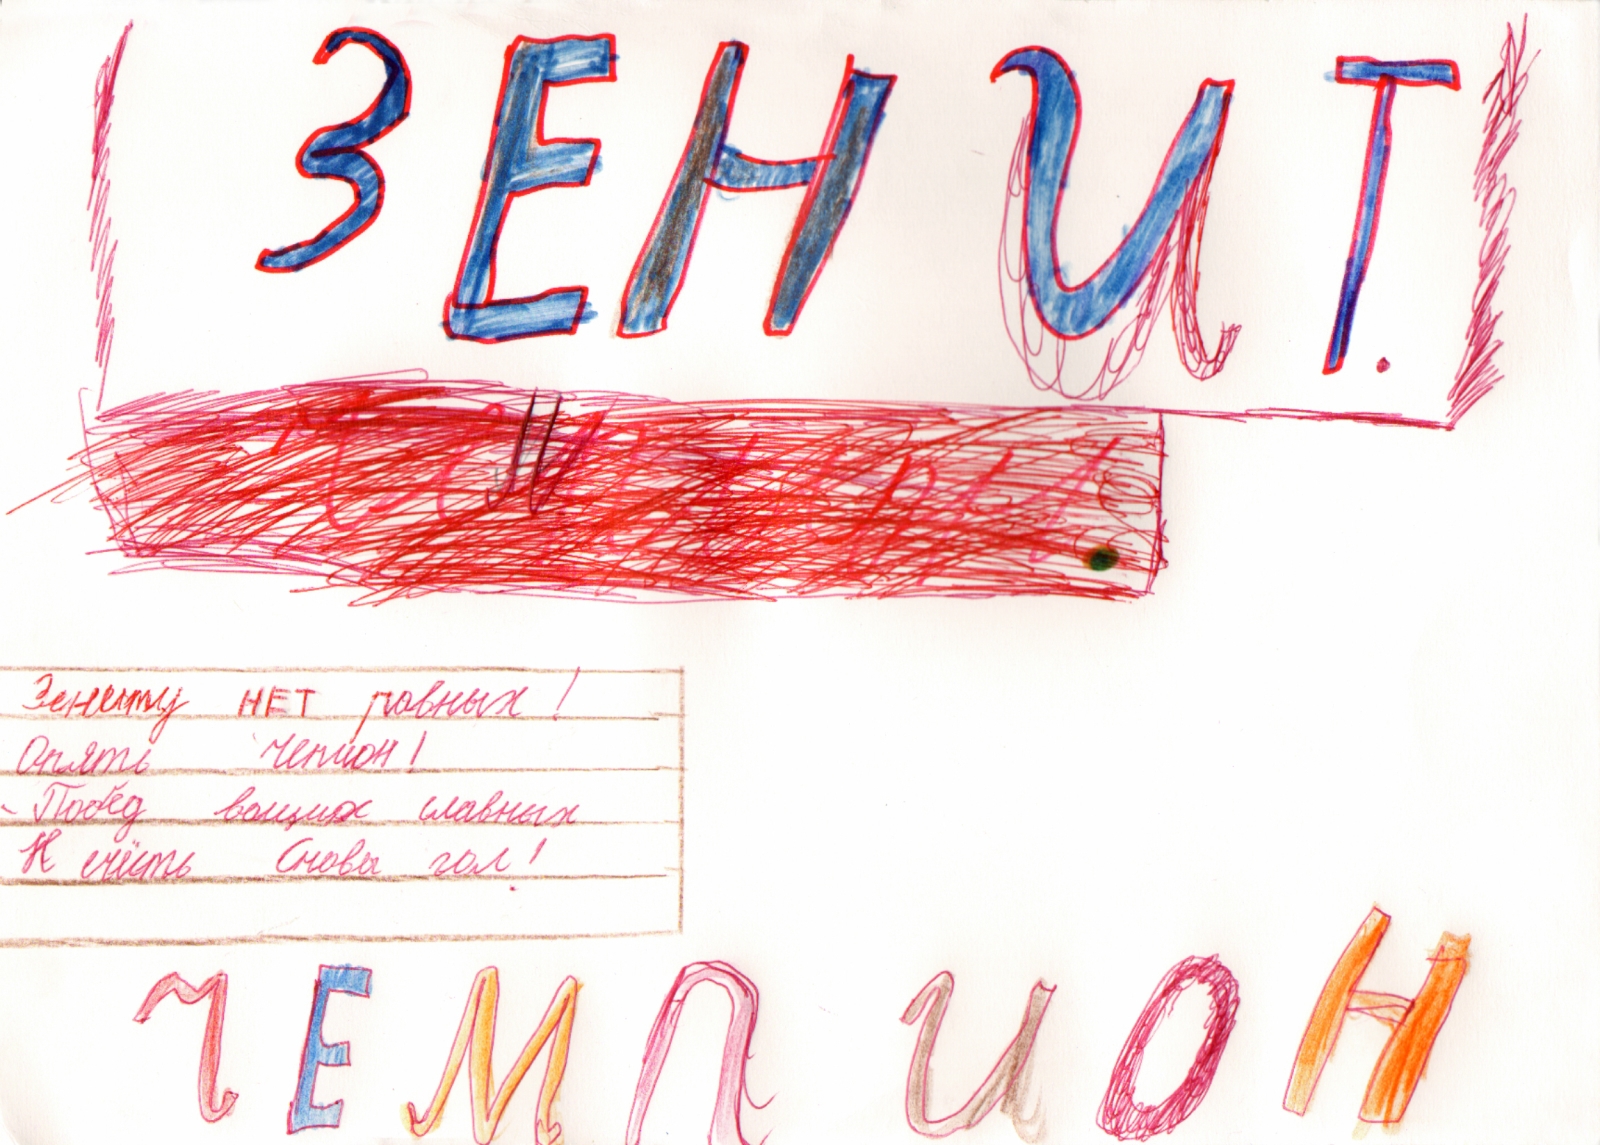 ЗЕНИТ.
Зениту НЕТ равных!
Опять Чепион!
Побед ваших славных
Не счесть Снова гол!
ЧЕМПИОН